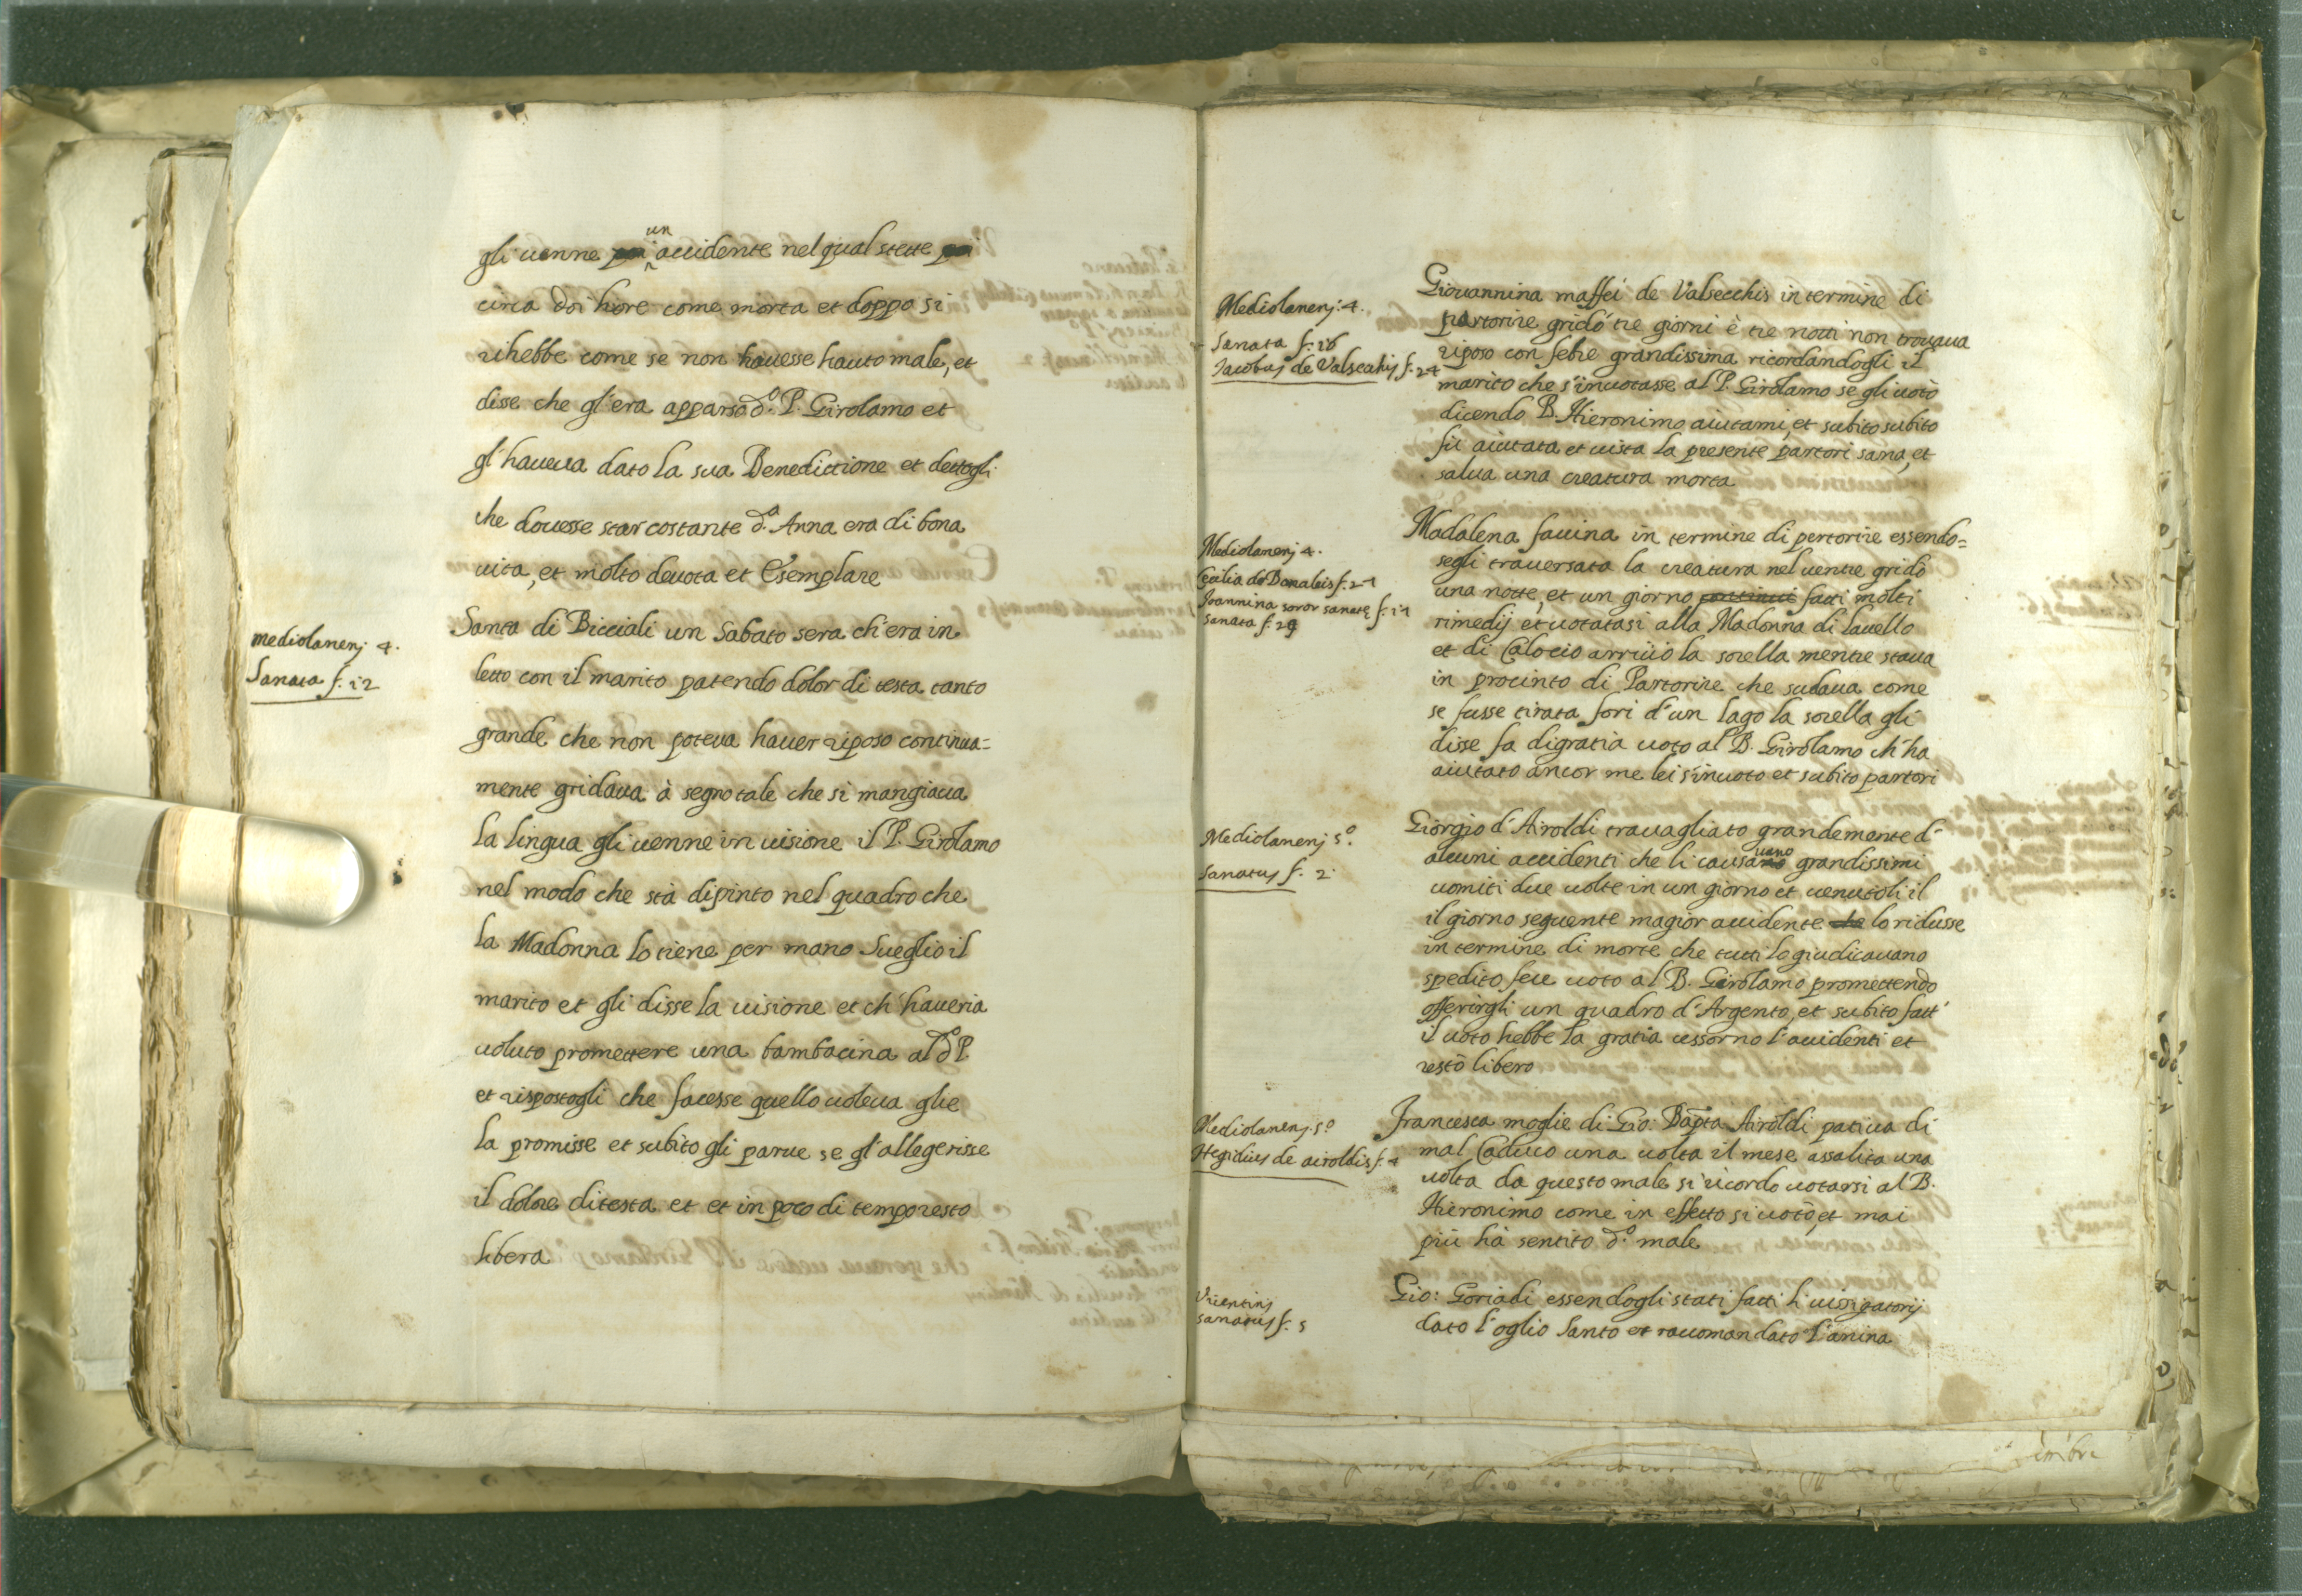 gli uenne poi un accidente nel qual stette poi
circa doi hore come morta et doppo si
rihebbe come se non hauesse hauto male, et
disse che gl'era apparso d.º P. Girolamo et
gl'haueua dato la sua Benedictione et dettogli
che douesse star costante d.ª Anna era di bona
uita, et molto deuota et Esemplare
mediolanenj 4.
Sanata f. 12
Santa di Bicciali un Sabato sera ch'era in
letto con il marito patendo dolor di testa tanto
grande che non poteua hauer riposo continua=
mente gridaua à segno tale che si mangiaua
la lingua gli uenne in uisione il P. Girolamo
nel modo che stà dipinto nel quadro che
la Madonna lo tiene per mano Sueglio il
marito et gli disse la uisione et ch'haueria
uoluto promettere una bambacina al d.º P.
et rispostogli che facesse quello uoleua glie
la promisse et subito gli parue se gl'allegerisse
il dolore di testa et et in poco di tempo resto
libera
Mediolanenj: 4.
Sanata f. 16
Jacobus de Valsechis f. 24
Giouannina maffei de Valsecchis in termine di
partorire gridò tre giorni è tre notti non trouaua
riposo con febre grandissima ricordandogli il
marito che s'inuotasse al P. Girolamo se gli uotò
dicendo B. Hieronimo aiutami, et subito subito
fù aiutata et uista la presente partori sana, et
salua una creatura morta
Mediolanenj 4.
Cecilia de Bonaleis f. 21
Joannina soror sanatę f. 11
sanata f. 29
Madalena fauina in termine di pertorire essendo=
segli trauersata la creatura nel uentre gridò
una notte, et un giorno continui fatti molti
rimedij et uotatasi alla Madonna di lauello
et di Calocio arriuò la sorella mentre staua
in procinto di Partorire che sudaua come
se fusse tirata fori d'un lago la sorella gli
disse fa di gratia uoto al B. Girolamo ch'ha
aiutato ancor me lei s'inuoto et subito partori
Mediolanenj 5º.
Sanatus f. 2
Giorgio d'Airoldi trauagliato grandemente d'
alcuni accidenti che li causauano grandissimi
uomiti due uolte in un giorno et uenutoli il
il giorno seguente magior accidente che lo ridusse
in termine di morte che tutti lo giudicauano
spedito fece uoto al B. Girolamo promettendo
offerirgli un quadro d'Argento, et subito fatt'
il uoto hebbe la gratia cessorno l'accidenti et
restò libero
Mediolanenj. 5º
Hegidius de airoldis f. 4
Francesca moglie di Gio: Bapta Airoldi patiua di
mal Caduco una uolta il mese assalita una
uolta da questo male si ricordo uotarsi al B.
Hieronimo come in effetto si uotò, et mai
più hà sentito d.º male
sanatus f. 5
Gio: Goriadi essendogli stati fatti li uissigatorij
dato l'oglio Santo et raccomandato l'anima